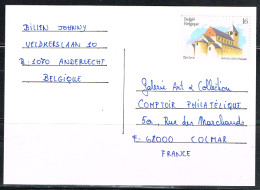 BILIEN JOHNNY
VELDKERSLAAN 10
B 1070 ANDERLECHT
BELGIQUE
België
Belgique
16
Galerie Art & Collection
COMPTOIR PHILATÉLIQUE
50, Rue des Marchands
F- 68000 COLMAR
FRANCE